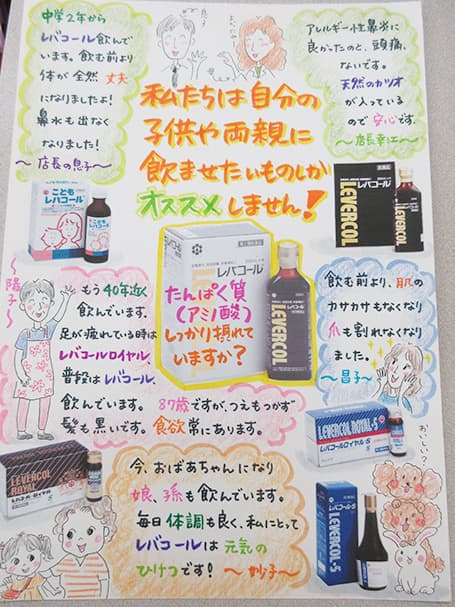 中学2年から
レバコール飲んで
います。飲む前より
体が全然 丈夫
になりましたよ!
鼻水も出なく
なりました!
〜店長の息子〜
アレルギー性鼻炎に
良かったのと、頭痛、
ないです。
天然のカツオ
が入っている
ので安心です。
〜店長幸江〜
私たちは自分の
子供や両親に
飲ませたいものしか
オススメしません!
こども
レバコール
LEVERCOL
LEVERCOL
レバコール
LEVERCOL
たんぱく質
(アミノ酸)
しっかり摂れて
いますか?
〜陽子〜
もう40年近く
飲んでいます。
足が疲れている時は
レバコールロイヤル、
普段はレバコール、
飲んでいます。87歳ですが、つえもつかず
髪も黒いです。食欲常にあります。
飲む前より、肌の
カサカサもなくなり
爪も割れなくなり
ました。
〜昌子〜
LEVERCOL ROYAL-S
レバコールロイヤル-S
LEVERCOL
ROYAL
レバコールロイヤル
今、おばあちゃんになり
娘、孫も飲んでいます。
毎日体調も良く、私にとって
レバコールは元気の
ひけつです! 〜妙子〜
おいしい?
LEVERCOL-S
LEVERCOL-S